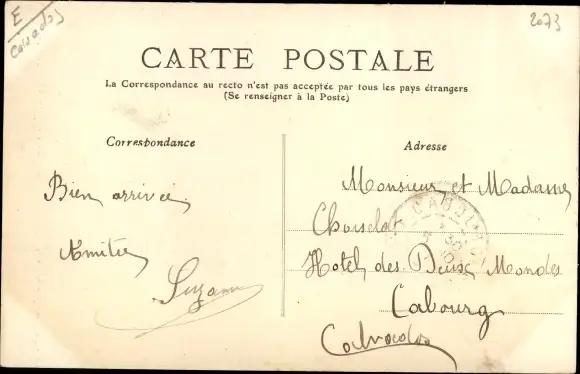 E
Calvados
2073
CARTE POSTALE
La Correspondance au recto n'est pas acceptée par tous les pays étrangers
(Se renseigner à la Poste)
Correspondance
Bien arrivée,
Amitiés
Suzanne
Adresse
Monsieur et Madame
Choiselat
Hotel des Deux Mondes
Cabourg
Calvados